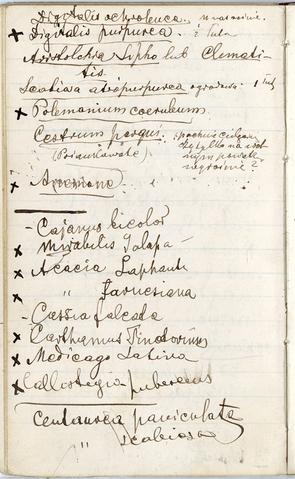 Digitalis ochroleuca. nasienie.
x Digitalis purpurea. i
Aristolochia Sipho lub Clemati-
tis.
Scotiosa atropurpurea ogrodowa. 1
x Polemanium coeruleum.
Cestrum parqui.
czy tylko na wet
nasienie?
x Anemone
- Cajanus bicolor
x Mirabilis Jalapa -
x Acacia Laphanta
x " Farnesiana
- Cassia falcada
x Carthamus Tinctorius
x Medicago Sativa
x Callostegia pubescens
Centaurea paniculata
" scabiosa